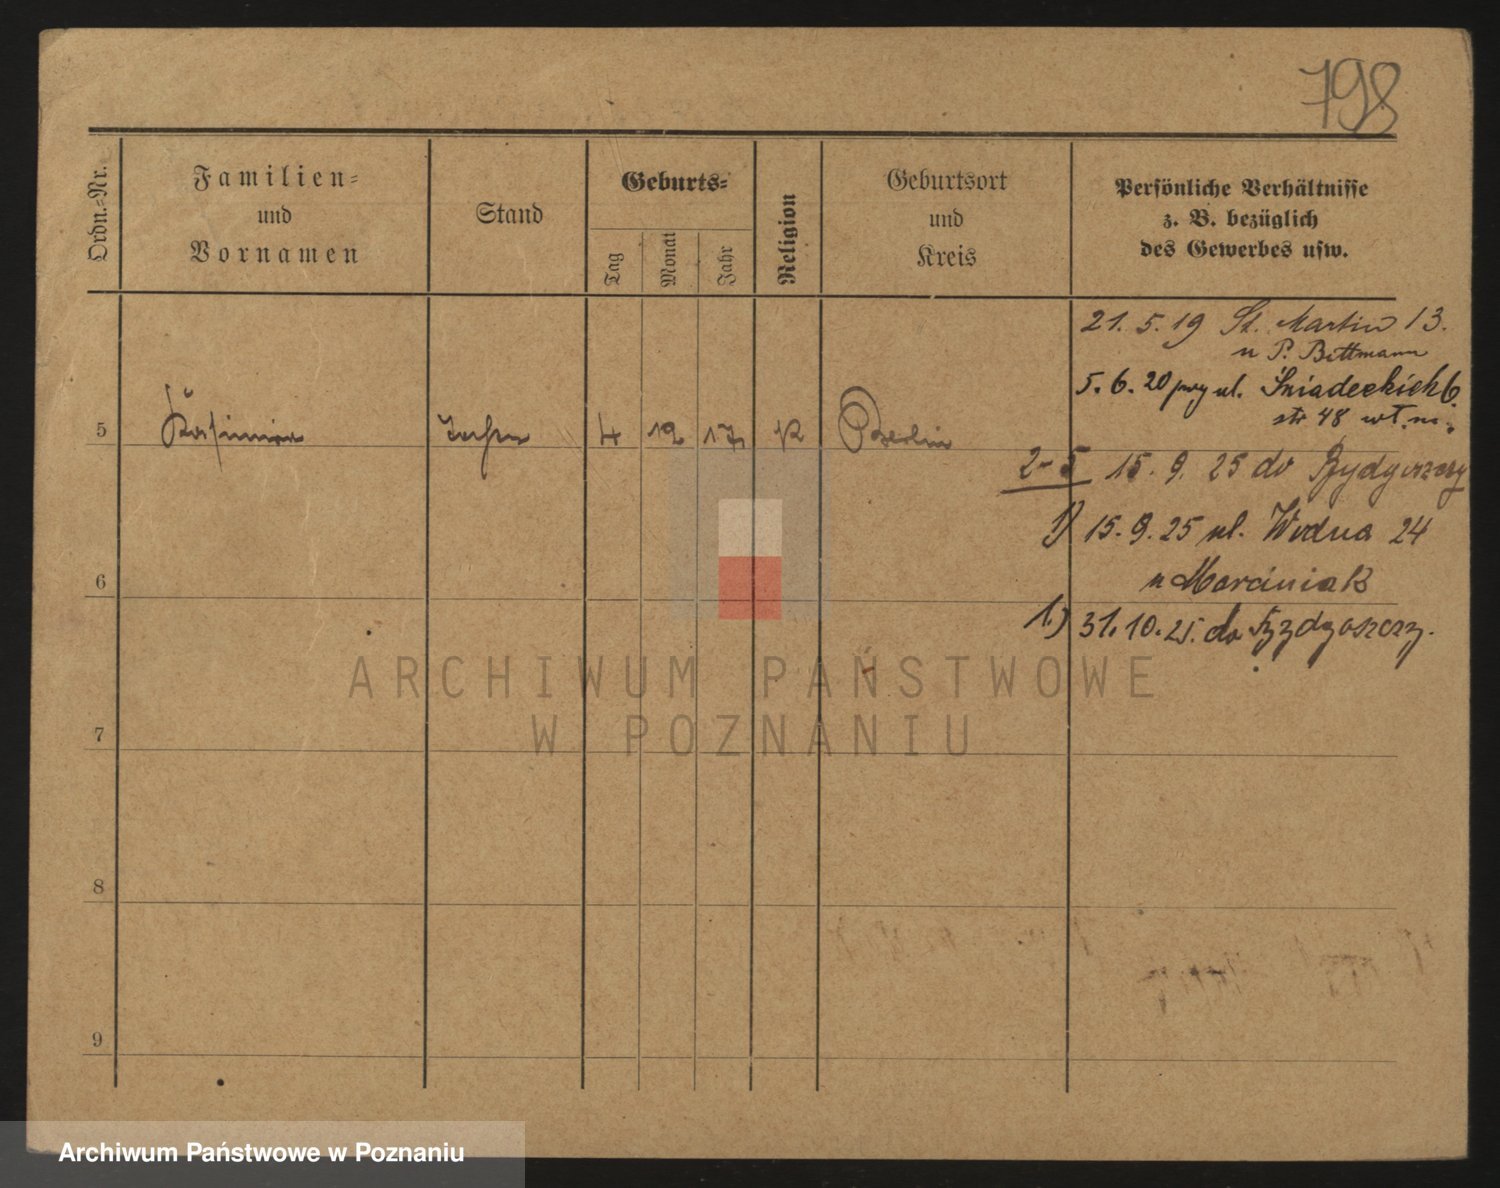 798
Ordn.-Nr.
Familien-
und
Vornamen
Stand
Geburts-
Tag
Monat
Jahr
Religion
Geburtsort
und
Kreis
Persönliche Verhältnisse
z. B. bezüglich
des Gewerbes usw.
21. 5. 19 St. Martin 13.
u P. Bittmann
5. 6. 20 przy ul. Śniadeckich 6.
str 48 wł. m.
5 Kasimira 4 12 17, K Berlin
2-5 15. 9. 25 do Bydgoszczy
1) 15. 9. 25 ul. Wodna 24
u Marciniak
1.) 31. 10. 25. do Bydgoszczy.
6
7
8
9
ARCHIWUM PAŃSTWOWE
W POZNANIU
Archiwum Państwowe w Poznaniu